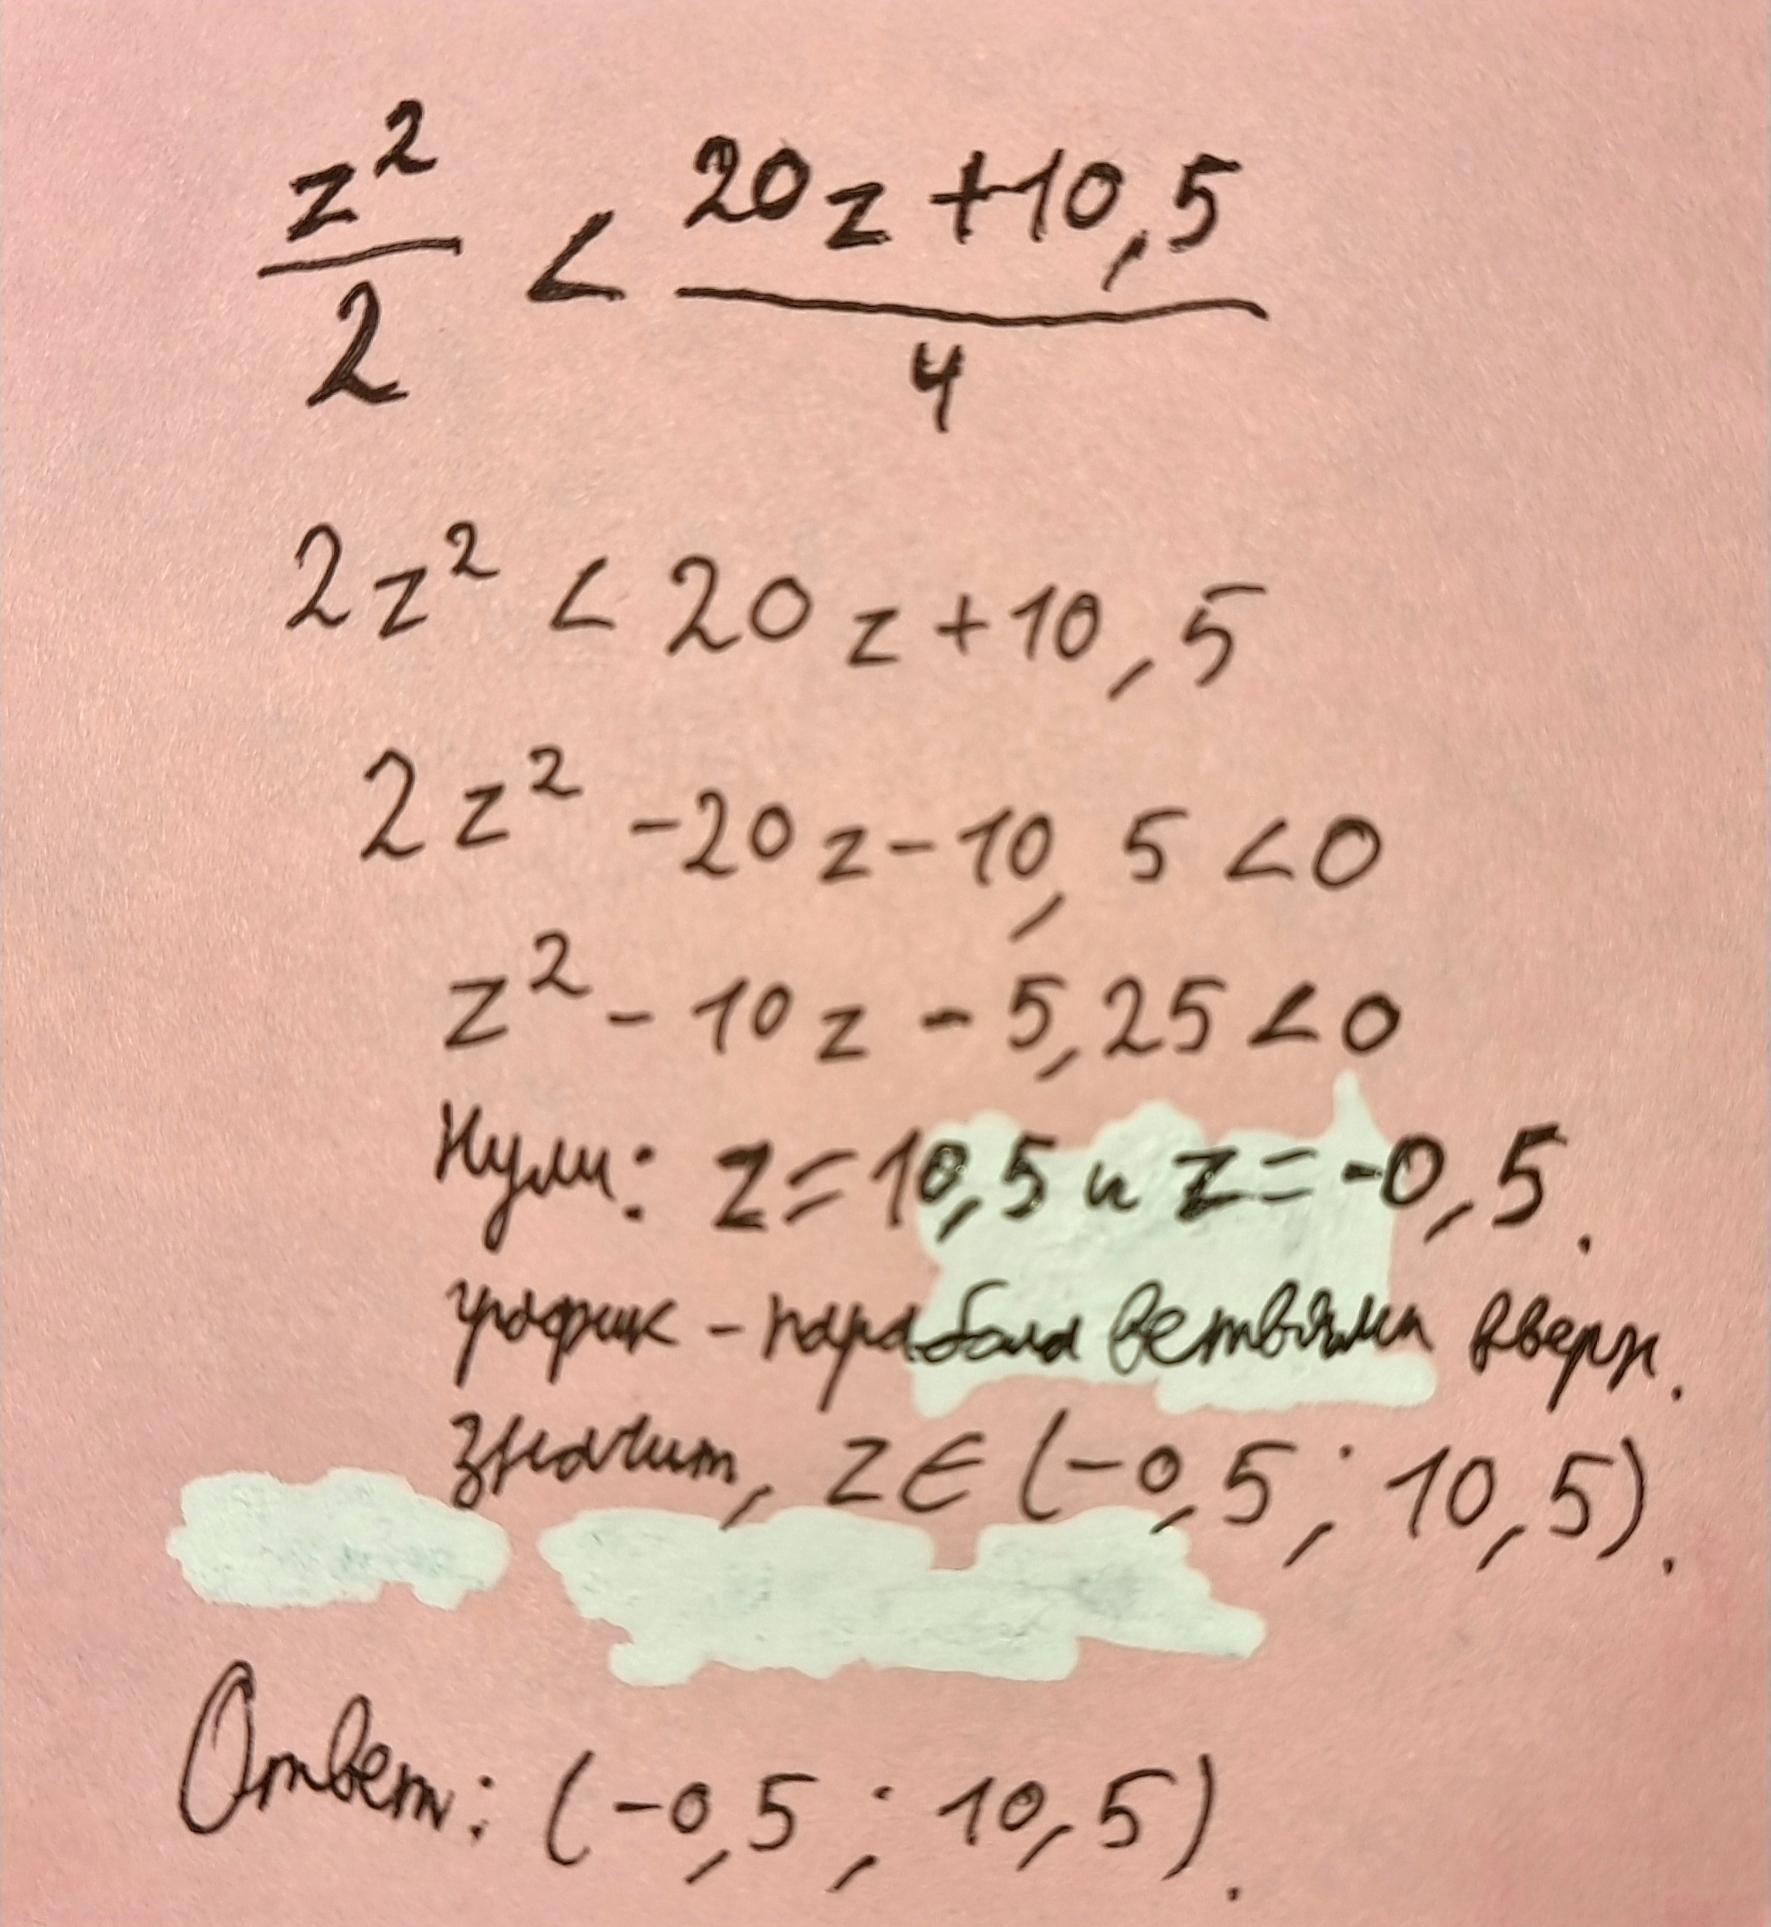 z²/2 < (20z + 10,5)/4
2z² < 20z + 10,5
2z² - 20z - 10,5 < 0
z² - 10z - 5,25 < 0
Нули: z = 10,5 и z = -0,5.
график - парабола ветвями вверх.
значит, z ∈ (-0,5; 10,5).
Ответ: (-0,5; 10,5).